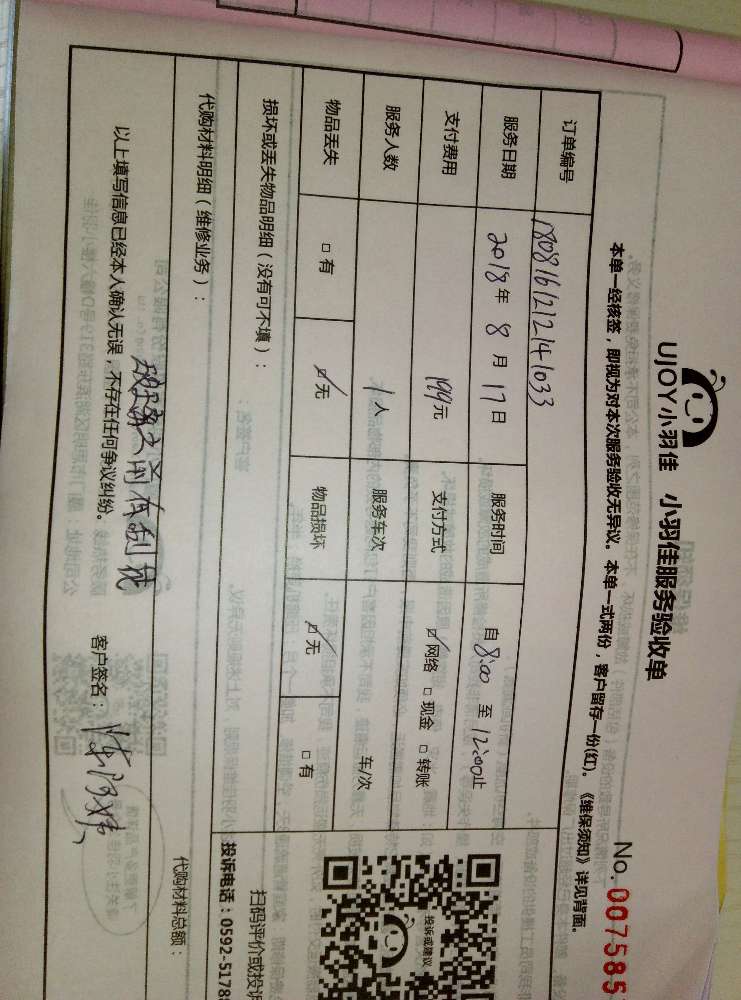 UJOY小羽佳 小羽佳服务验收单
No. 007585
本单一经核签，即视为对本次服务验收无异议。本单一式两份，客户留存一份(红)。《维保须知》详见背面。
订单编号 180816121241033
服务日期 2018年 8月 17日 服务时间 自 8:00 至 12:00止
支付费用 199元 支付方式 ☑网络 □现金 □转账
服务人数 1人 服务车次 车/次
物品丢失 □有 ☑无 物品损坏 ☑无 □有
损坏或丢失物品明细（没有可不填）：
代购材料明细（维修业务）：
代购材料总额：
玻璃之前有刮花
以上填写信息已经本人确认无误，不存在任何争议纠纷。 客户签名：
投诉或建议
扫码评价或投诉
投诉电话：0592-5178